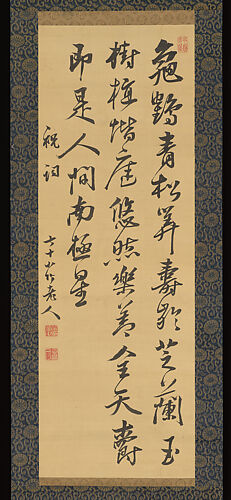 龜鶴青松算壽齡芝蘭玉
樹植階庭悠然樂善全天爵
即是人間南極星
祝詞
老人